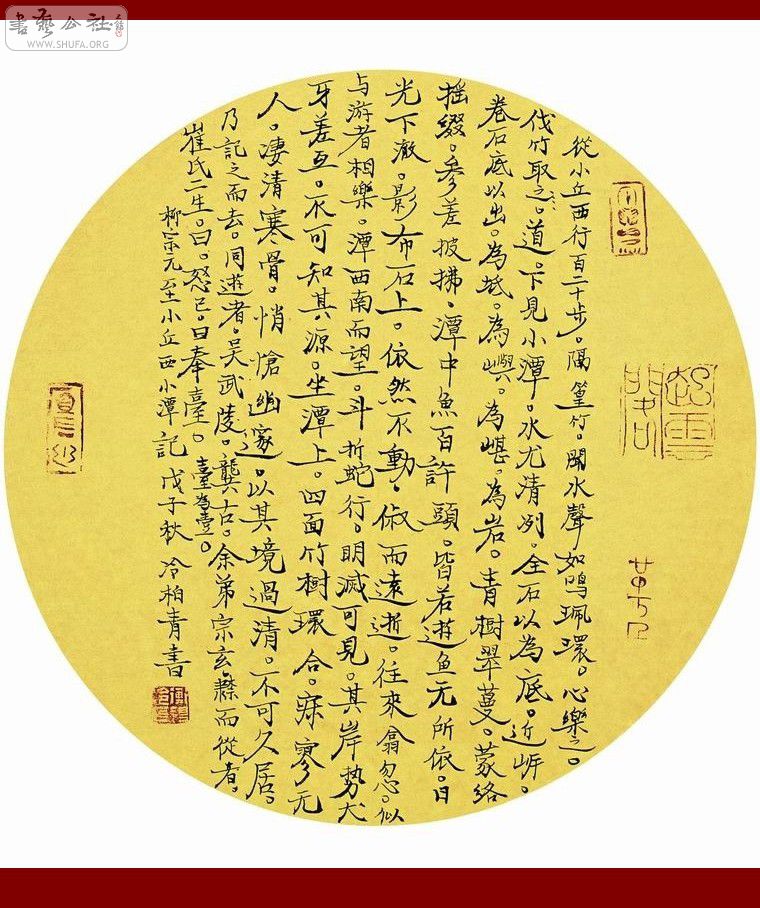 書藝公社
WWW.SHUFA.ORG
從小丘西行百二十步。隔篁竹。聞水聲如鸣珮環。心樂之。
伐竹取之。道。下見小潭。水尤清冽。全石以為底。近岸。
卷石底以出。為坻。為嶼。為嵁。為岩。青樹翠蔓。蒙络
摇綴。參差披拂。潭中魚百許頭。皆若遊鱼无所依。日
光下澈。影布石上。依然不動。俶而遠逝。往來翕忽。似
与游者相樂。潭西南而望。斗折蛇行。明滅可見。其岸勢犬
牙差互。不可知其源。坐潭上。四面竹樹環合。寂寥无
人。凄清寒骨。悄怆幽邃。以其境過清。不可久居。
乃記之而去。同遊者。吴武陵。龔古。余弟宗玄。隸而從者。
崔氏二生。曰。怒己。曰奉臺。臺為壹。
柳宗元至小丘西小潭記 戊子秋 冷柏青書